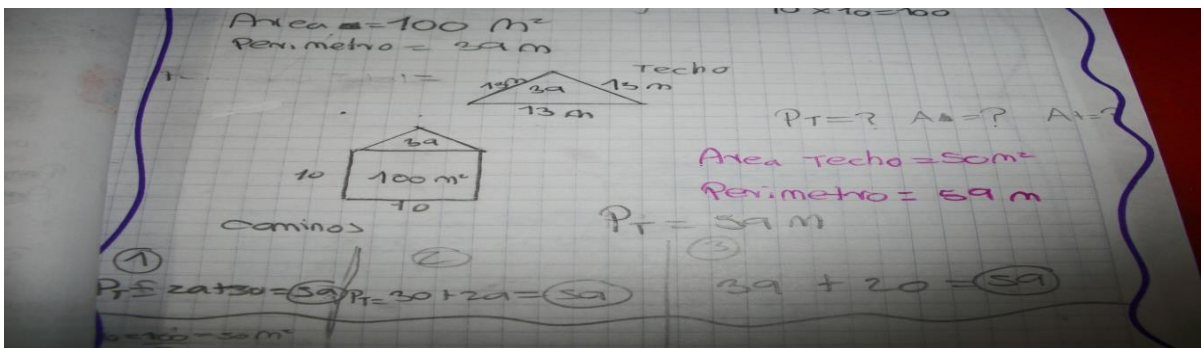 10 x 10=100
Area =100 m²
Perimetro = 39 m
Techo
13m 39 13 m
13 m
PT=? A▲=? At=?
39
10 100 m²
10
Area Techo = 50m²
Perimetro = 59 m
Caminos
PT = 59 m
① ② ③
PT = 29+30=59 PT= 30+29=59 39 + 20 = 59